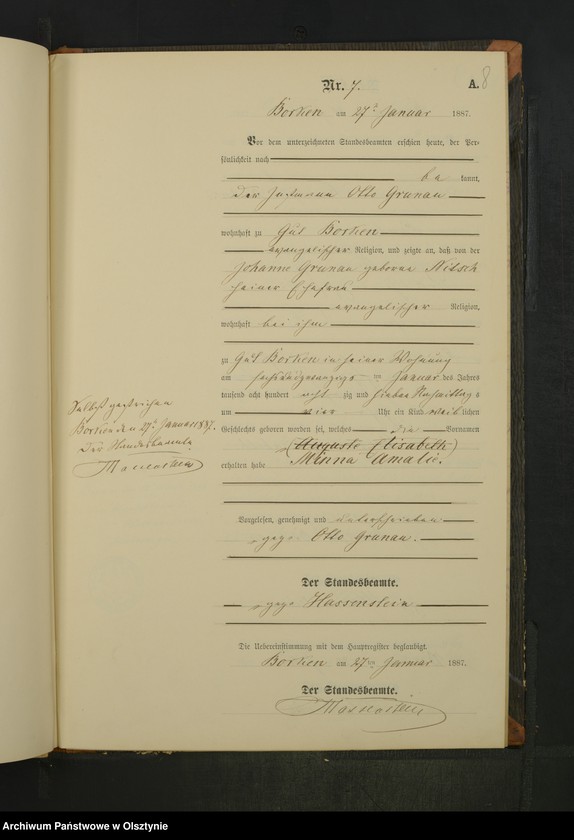 Nr. 7.
A. 8
Borken am 27ten Januar 1887.
Vor dem unterzeichneten Standesbeamten erschien heute, der Per-
sönlichkeit nach
be kannt,
der Instmann Otto Grunau
wohnhaft zu Gut Borken
evangelischer Religion, und zeigte an, daß von der
Johanne Grunau geborne Nitsch
seiner Ehefrau
evangelischer Religion,
wohnhaft bei ihm
zu Gut Borken in seiner Wohnung
am sechsundzwanzigsten Januar des Jahres
tausend acht hundert acht zig und sieben Nachmittags
um vier Uhr ein Kind weiblichen
Geschlechts geboren worden sei, welches die Vornamen
(Auguste Elisabeth)
Minna Amalie.
erhalten habe
Selbst gestrichen
Borken den 27ten Januar 1887.
Der Standesbeamte
Hassenstein
Vorgelesen, genehmigt und unterschrieben
gez. Otto Grunau.
Der Standesbeamte.
gez. Hassenstein
Die Uebereinstimmung mit dem Hauptregister beglaubigt
Borken am 27ten Januar 1887.
Der Standesbeamte.
Hassenstein
Archiwum Państwowe w Olsztynie